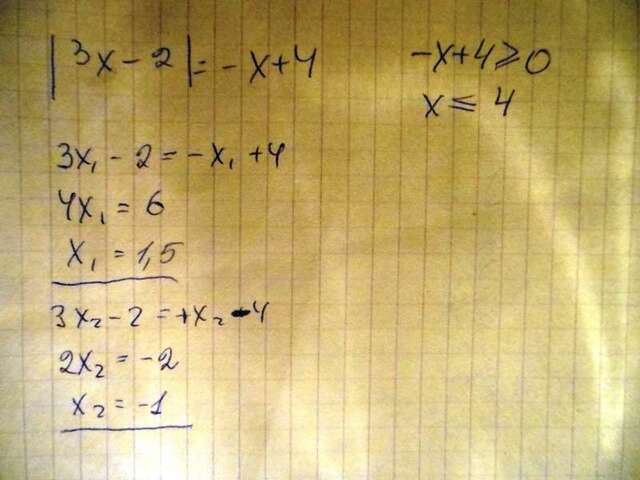 |3x-2|=-x+4
-x+4≥0
x≤4
3x₁-2=-x₁+4
4x₁=6
x₁=1,5
3x₂-2=+x₂-4
2x₂=-2
x₂=-1